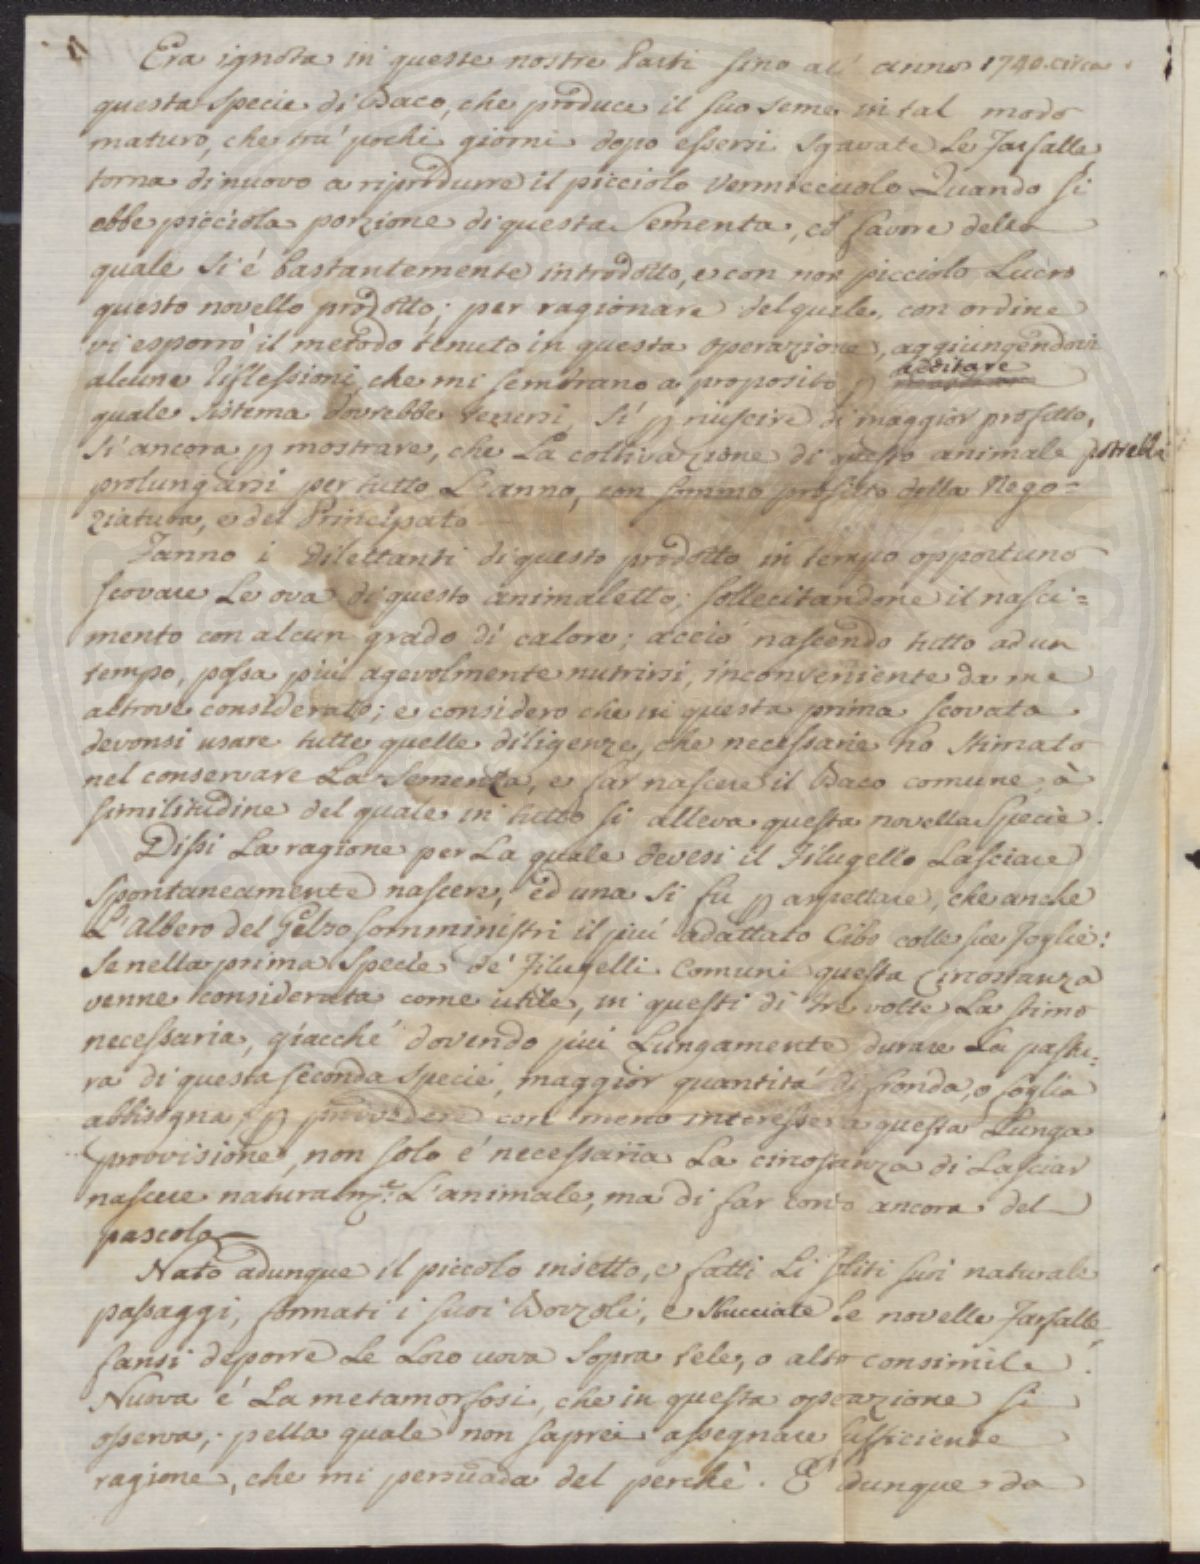 Era ignota in queste nostre parti sino all' anno 1740. circa
questa specie di Baco, che produce il suo seme in tal modo
maturo, che trà pochi giorni dopo essersi sgravate le Farfalle
torna di nuovo a riprodurre il picciolo vermicciuolo. Quando si
ebbe picciola porzione di questa sementa, col favore della
quale si é bastantemente introdotto, e con non picciolo Lucro
questo novello prodotto; per ragionare del quale, con ordine
vi esporrò il metodo tenuto in questa operazione, aggiungendovi
alcune riflessioni, che mi sembrano a proposito p additare
quale sistema dovrebbe tenersi, sí p riuscire di maggior profitto,
sí ancora p mostrare, che La coltivazione di questo animale potrebbe
prolungarsi per tutto L'anno, con sommo profitto della Nego=
ziatura, e del Principato
Fanno i Dilettanti di questo prodotto in tempo opportuno
scovare Le ova di questo animaletto; sollecitandone il nasci=
mento con alcun grado di calore; acciò nascendo tutto ad un
tempo, possa piú agevolmente nutrirsi, inconveniente da me
altrove considerato; e considero che in questa prima scovata
devonsi usare tutte quelle diligenze, che necessarie hò stimato
nel conservare La Sementa, e far nascere il Baco comune, à
similitudine del quale in tutto si alleva questa novella Specie.
Dissi La ragione per La quale devesi il Filugello Lasciare
spontaneamente nascere, ed una si fù p aspettare, che anche
L'Albero del Gelso somministri il piú adattato Cibo colle sue foglie:
Se nella prima specie de' Filugelli Comuni questa Circostanza
venne considerata come utile, in questi di tre volte La stimo
necessaria, giacché dovendo piú Lungamente durare La pastu=
ra di questa seconda specie, maggior quantitá di fronda, o foglia
abbisogna, p provvedere con meno interesse a questa Lunga
provvisione, non solo é necessaria La circostanza di Lasciar
nascere naturalm.te L'animale, ma di far conto ancora del
pascolo
Nato adunque il piccolo insetto, e fatti Li soliti suoi naturale
passaggi, formati i suoi Bozzoli, e sbucciate Le novelle Farfalle,
fansi deporre Le Loro uova sopra tele, o altro consimile.
Nuova é La metamorfosi, che in questa operazione si
osserva, pella quale non saprei assegnare sufficiente
ragione, che mi persuada del perché. É dunque da